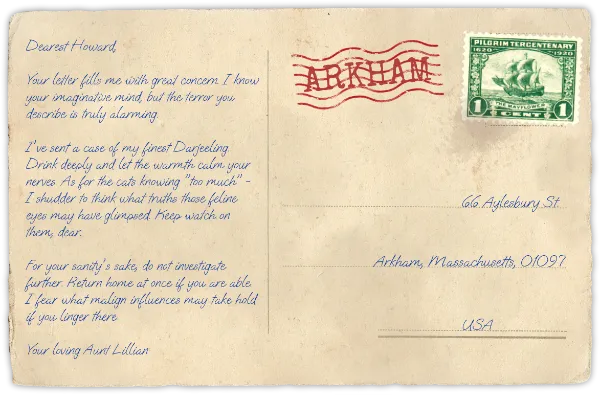 Dearest Howard,
Your letter fills me with great concern. I know
your imaginative mind, but the terror you
describe is truly alarming.
I've sent a case of my finest Darjeeling.
Drink deeply and let the warmth calm your
nerves. As for the cats knowing "too much" -
I shudder to think what truths those feline
eyes may have glimpsed. Keep watch on
them, dear.
For your sanity's sake, do not investigate
further. Return home at once if you are able.
I fear what malign influences may take hold
if you linger there.
Your loving Aunt Lillian
ARKHAM
PILGRIM TERCENTENARY
1620 1920
THE MAYFLOWER
1 CENT 1
66 Aylesbury St.
Arkham, Massachusetts, 01097
USA